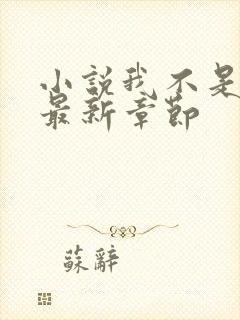 小說我不是
最新章節
蘇辭